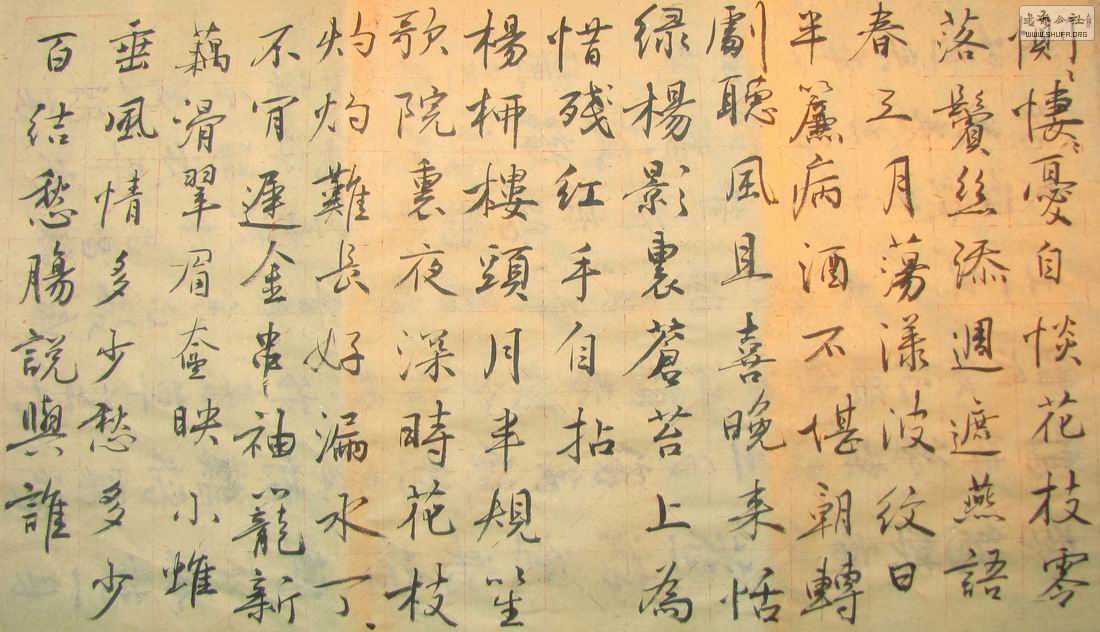 恻〻悽〻憂自惔花枝零
落鬢絲添週遮燕語
春三月蕩漾波紋日
半簾病酒不堪朝轉
劇聽風且喜晚来恬
緑楊影裏蒼苔上為
惜殘紅手自拈
楊柳樓頭月半規笙
歌院裏夜深時花枝
灼灼難長好漏水丁〻
不肎遲金串袖籠新
藕滑翠眉奁映小
垂風情多少愁多少
百结愁腸説與誰
WWW.SHUFA.ORG